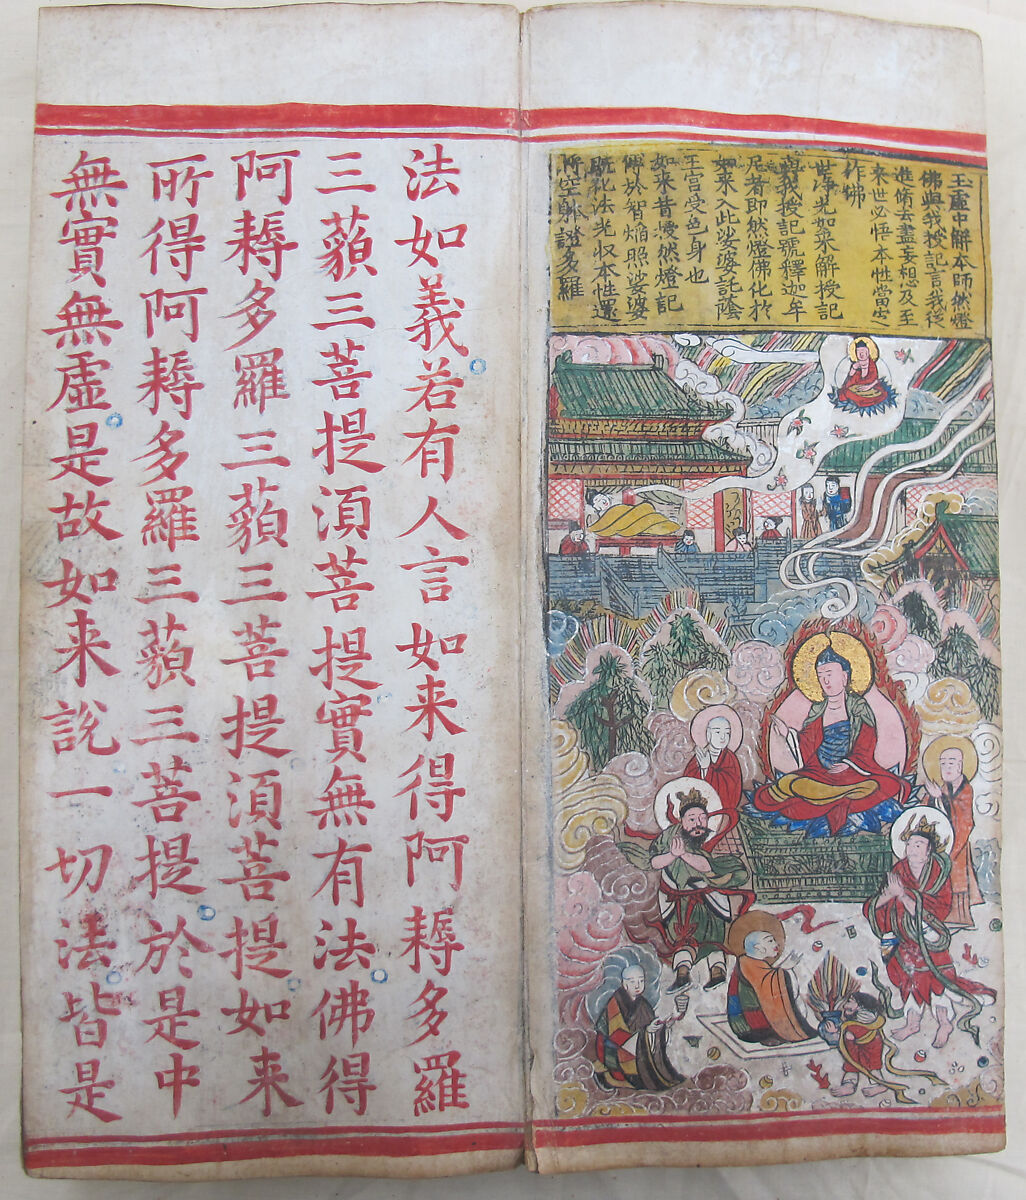 玉虛中解本師然燈
佛與我授記言我從
進脩去盡妄想及至
来世必悟本性當㝎
作佛
世淨光如来解授記
與我授記號釋迦牟
尼者即然燈佛化於
如来入此娑婆託蔭
王宮受色身也
如来昔浸然燈記
傅於智焰照娑婆
既化法光収本性還
所空躰證多羅
法如義若有人言如来得阿耨多羅
三藐三菩提湏菩提實無有法佛得
阿耨多羅三藐三菩提湏菩提如来
所得阿耨多羅三藐三菩提於是中
無實無虛是故如来說一切法皆是